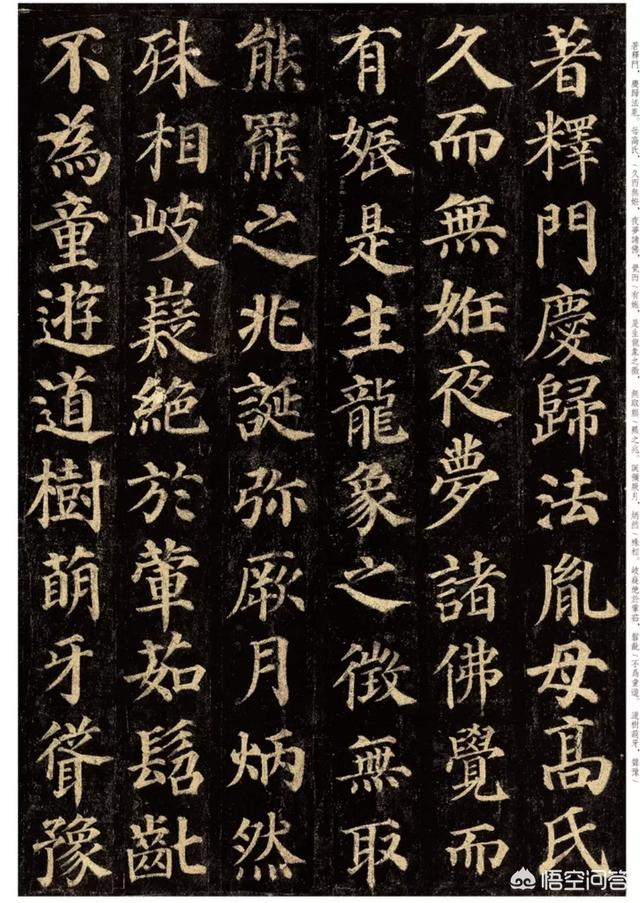 著釋門慶歸法胤母髙氏
久而無姙夜夢諸佛覺而
有娠是生龍象之徵無取
熊羆之兆誕弥厥月炳然
殊相岐嶷絶於葷茹髫齔
不為童遊道樹萌牙聳豫
著釋門，慶歸法胤。母高氏，（久而無姙，夜夢諸佛，覺而（有娠，是生龍象之徵，無取熊（羆之兆。誕彌厥月，炳然（殊相。岐嶷絕於葷茹，髫齔（不為童遊。道樹萌牙，聳豫（
悟空问答